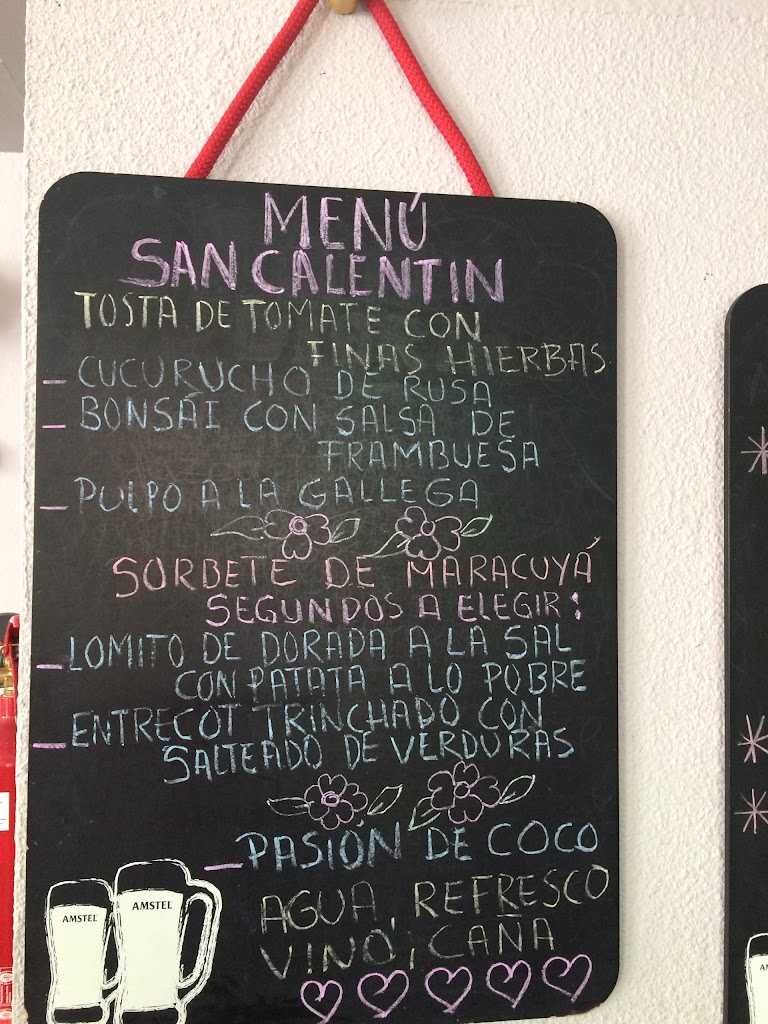 MENÚ
SAN CALENTIN
TOSTA DE TOMATE CON
FINAS HIERBAS
- CUCURUCHO DE RUSA
- BONSÁI CON SALSA DE
FRAMBUESA
- PULPO A LA GALLEGA
SORBETE DE MARACUYÁ
SEGUNDOS A ELEGIR:
- LOMITO DE DORADA A LA SAL
CON PATATA A LO POBRE
- ENTRECOT TRINCHADO CON
SALTEADO DE VERDURAS
- PASIÓN DE COCO
AGUA, REFRESCO
VINO, CAÑA
AMSTEL AMSTEL